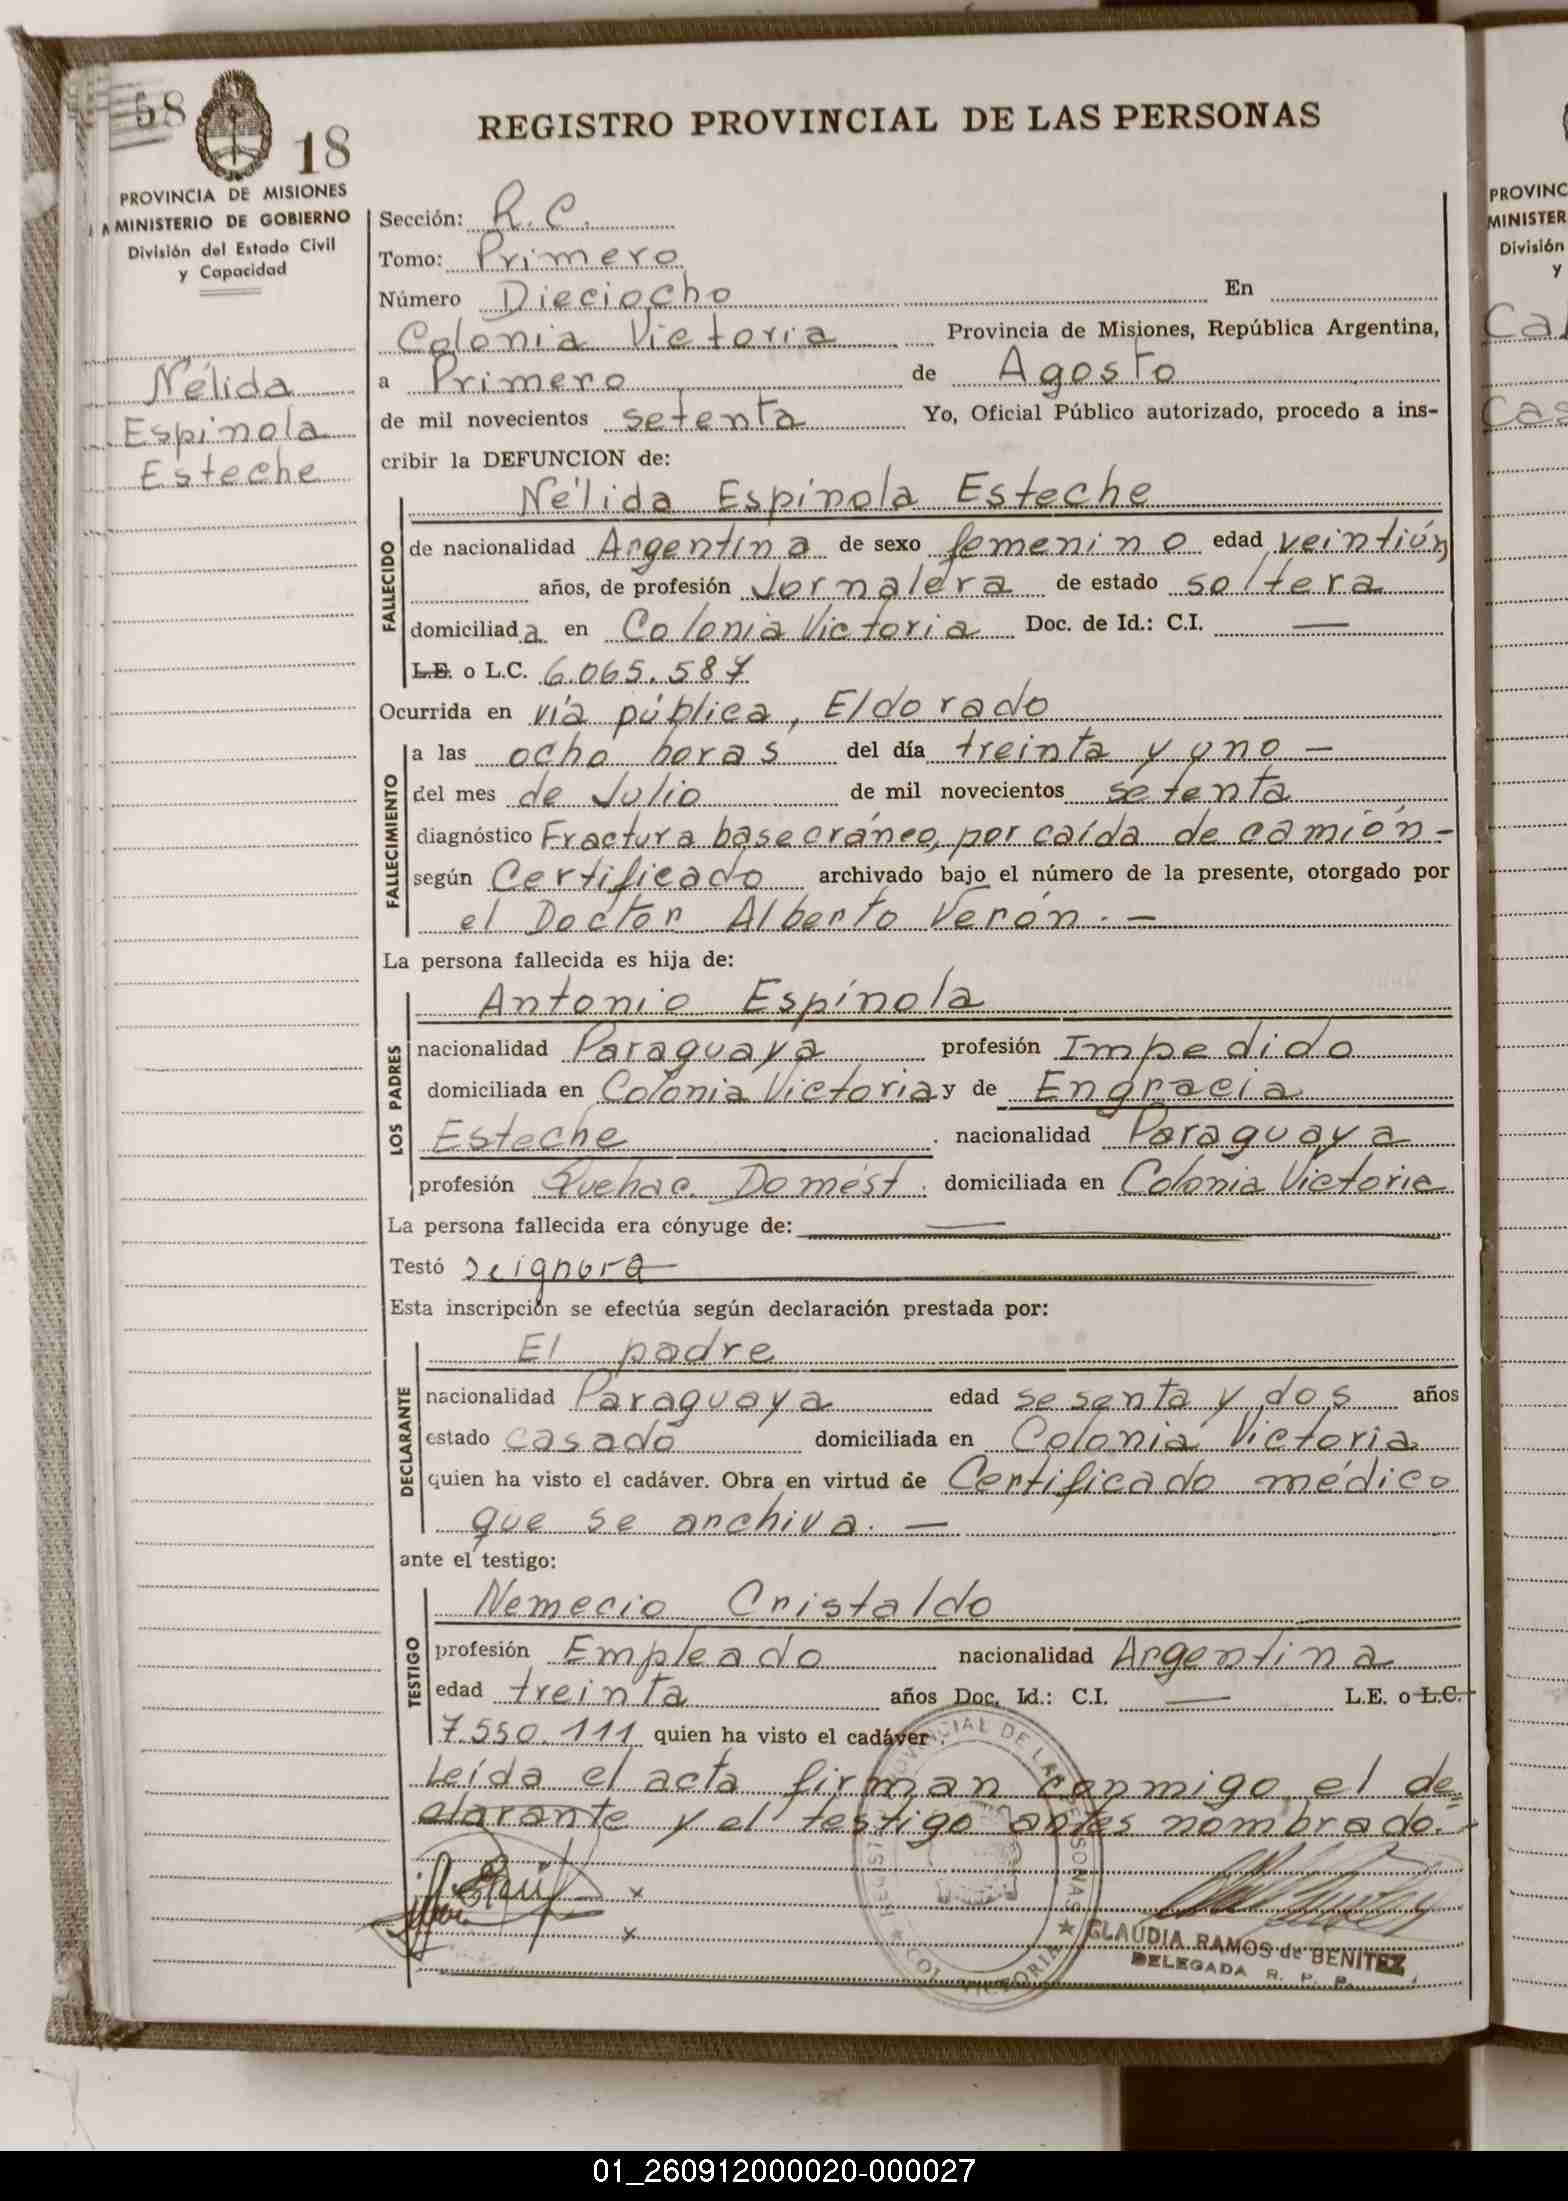 58
18
REGISTRO PROVINCIAL DE LAS PERSONAS
PROVINCIA DE MISIONES
MINISTERIO DE GOBIERNO
División del Estado Civil
y Capacidad
Nélida
Espinola
Esteche
Sección: R. C.
Tomo: Primero
Número Dieciocho En
Colonia Victoria Provincia de Misiones, República Argentina,
a Primero de Agosto
de mil novecientos setenta Yo, Oficial Público autorizado, procedo a ins-
cribir la DEFUNCION de:
Nélida Espínola Esteche
FALLECIDO
de nacionalidad Argentina de sexo femenino edad veintiún
años, de profesión Jornalera de estado soltera
domiciliada en Colonia Victoria Doc. de Id.: C.I. —
L.E. o L.C. 6.065.587
Ocurrida en vía pública, Eldorado
FALLECIMIENTO
a las ocho horas del día treinta y uno —
del mes de Julio de mil novecientos setenta
diagnóstico Fractura base cráneo, por caída de camión -
según Certificado archivado bajo el número de la presente, otorgado por
el Doctor Alberto Verón. —
La persona fallecida es hija de:
LOS PADRES
Antonio Espínola
nacionalidad Paraguaya profesión Impedido
domiciliada en Colonia Victoria y de Engracia
Esteche . nacionalidad Paraguaya
profesión Quehac. Domést. domiciliada en Colonia Victoria
La persona fallecida era cónyuge de: —
Testó se ignora
Esta inscripción se efectúa según declaración prestada por:
DECLARANTE
El padre
nacionalidad Paraguaya edad sesenta y dos años
estado casado domiciliada en Colonia Victoria
quien ha visto el cadáver. Obra en virtud de Certificado médico
que se archiva. —
ante el testigo:
TESTIGO
Nemecio Cristaldo
profesión Empleado nacionalidad Argentina
edad treinta años Doc. Id.: C.I. — L.E. o L.C.
7.550.111 quien ha visto el cadáver.
Leída el acta firman conmigo el de-
clarante y el testigo antes nombrado.-
x
x
PROVINCIAL DE LAS PERSONAS
COL. VICTORIA
CLAUDIA RAMOS de BENITEZ
DELEGADA R. P. P.
PROVINC
MINISTER
División
y
01_260912000020-000027